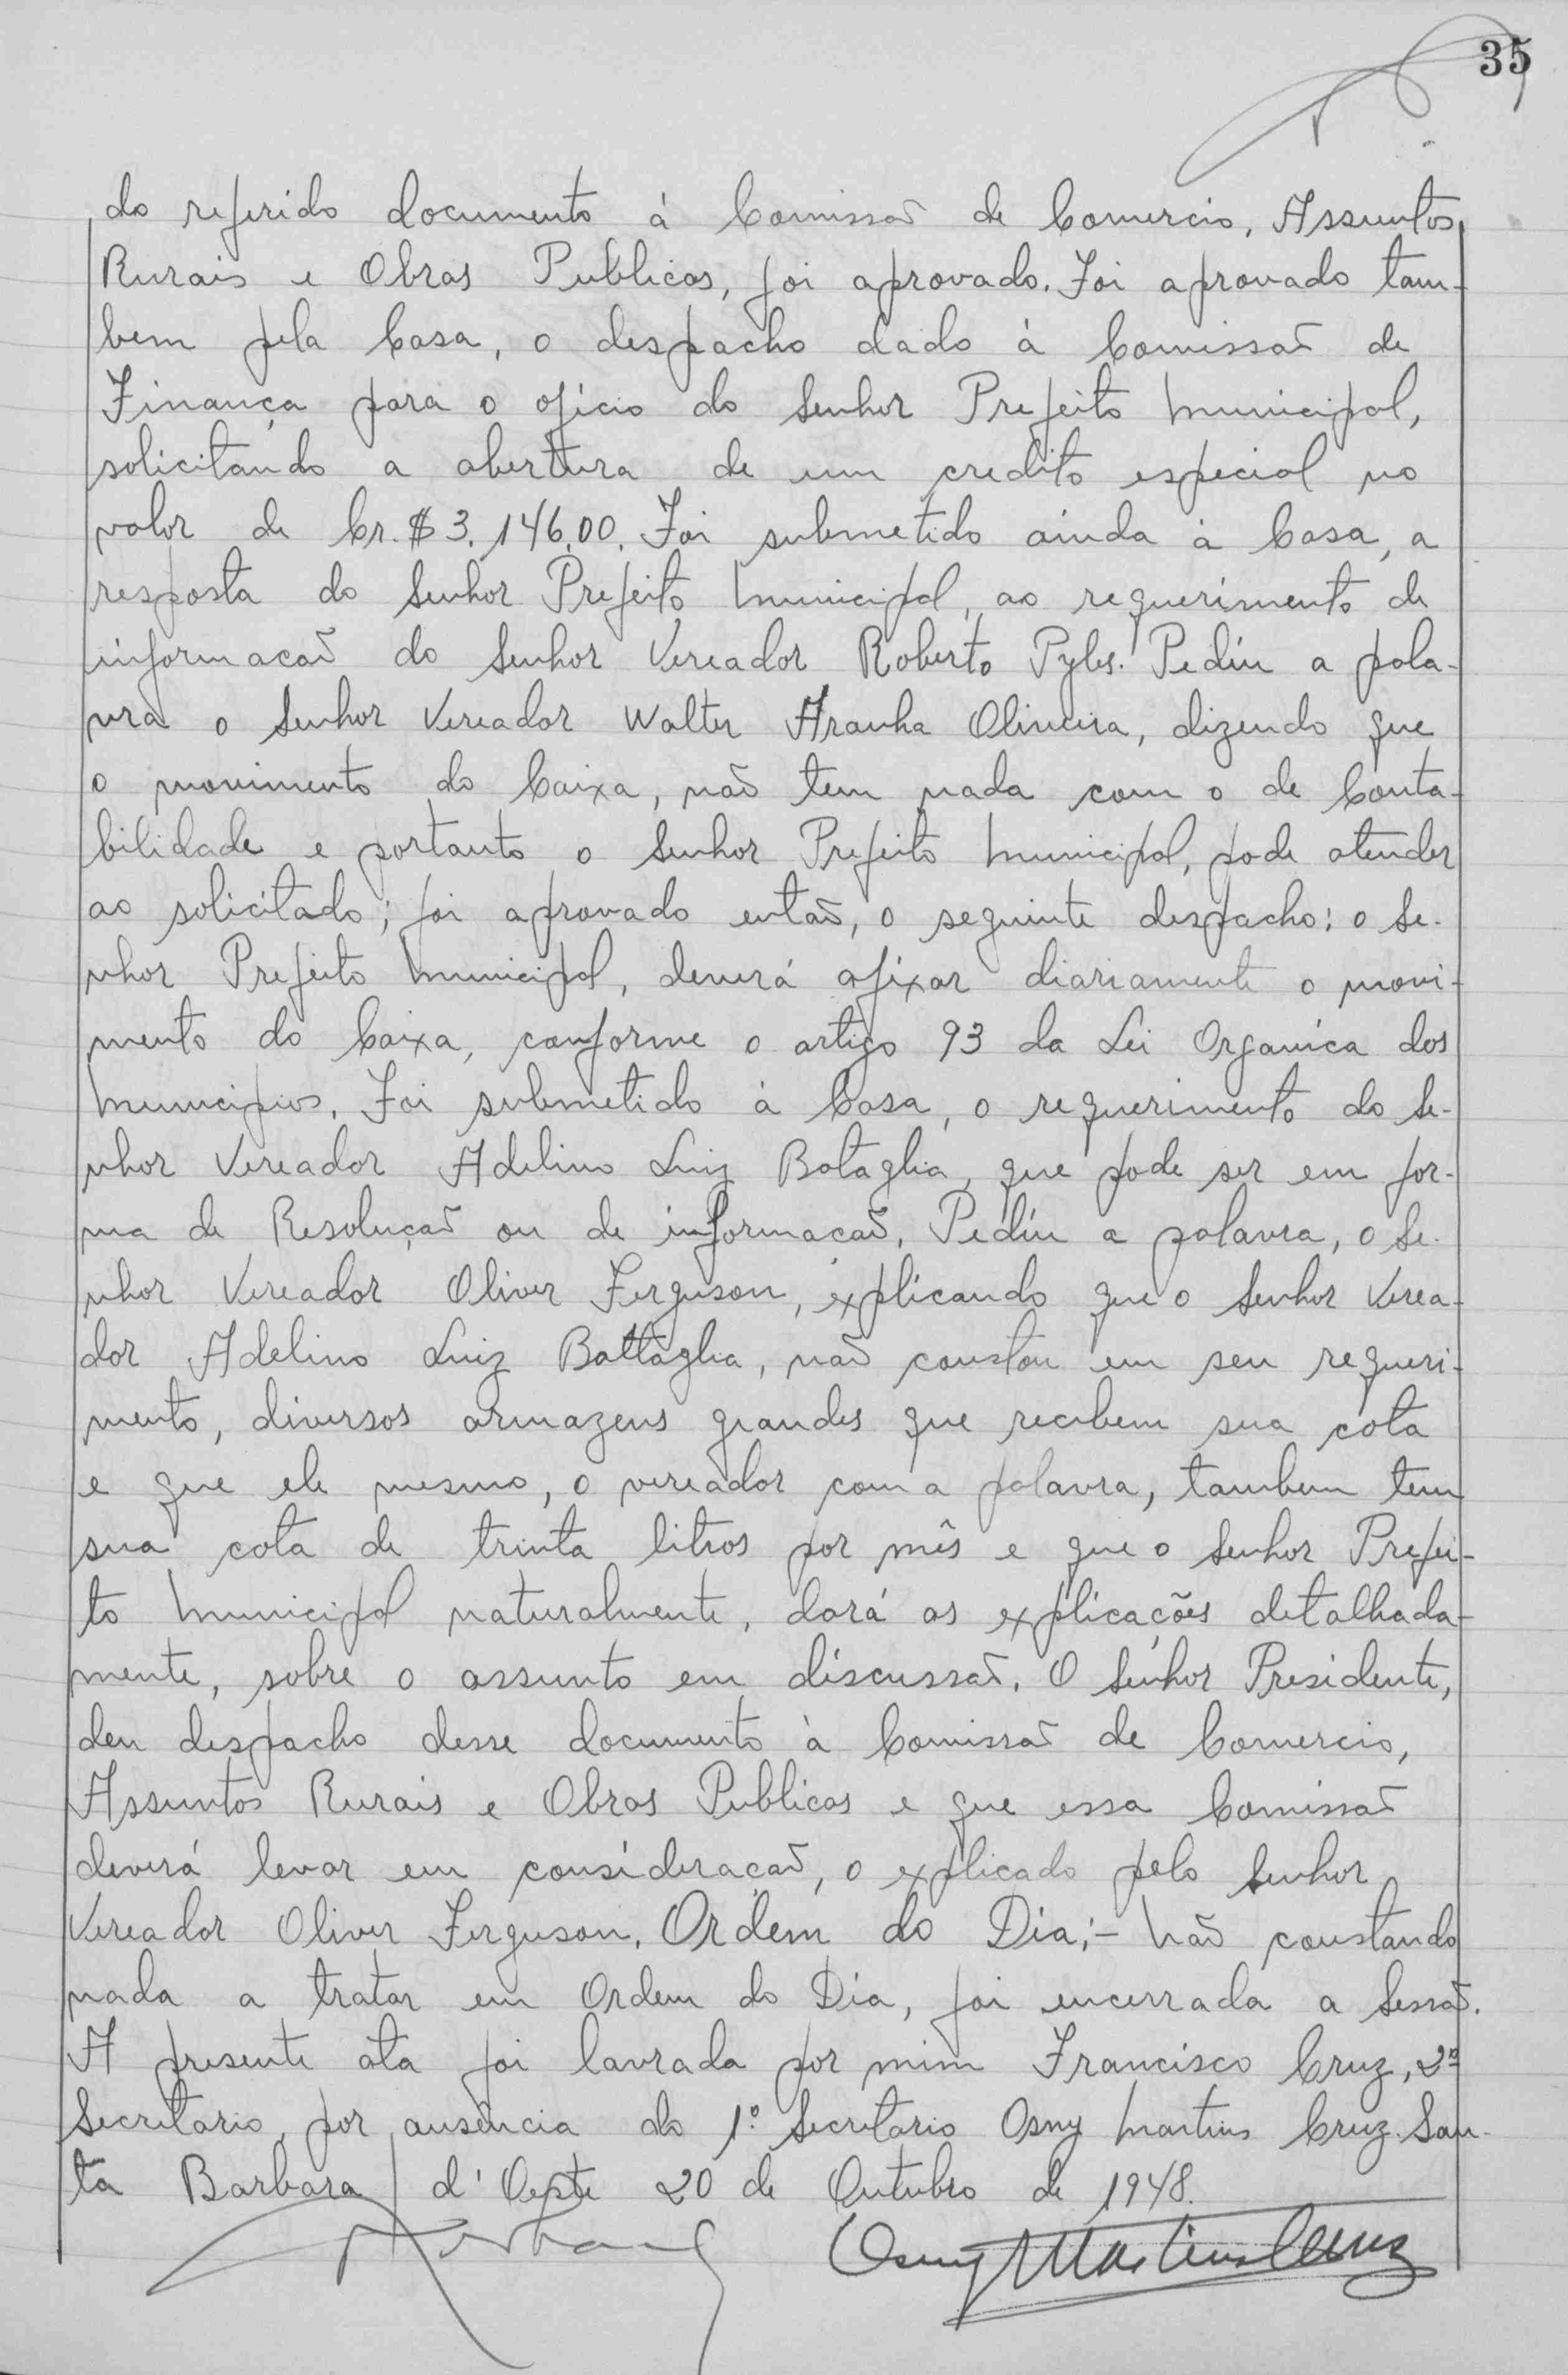 35
do referido documento à Comissaõ de Comercio, Assuntos
Rurais e Obras Publicas, foi aprovado. Foi aprovado tam-
bem pela Casa, o despacho dado à Comissaõ de
Finança para o oficio do Senhor Prefeito Municipal,
solicitando a abertura de um credito especial no
valor de Cr.$3.146,00. Foi submetido ainda à Casa, a
resposta do Senhor Prefeito Municipal, ao requerimento de
informacaõ do Senhor Vereador Roberto Pyles. Pediu a pala-
vra o Senhor Vereador Walter Aranha Oliveira, dizendo que
o movimento do Caixa, naõ tem nada com o de Conta-
bilidade e portanto o Senhor Prefeito Municipal, pode atender
ao solicitado; foi aprovado entaõ, o seguinte despacho: o Se-
nhor Prefeito Municipal, deverá afixar diariamente o movi-
mento do Caixa, conforme o artigo 93 da Lei Organica dos
Municipios. Foi submetido à Casa, o requerimento do Se-
nhor Vereador Adelino Luiz Bataglia, que pode ser em for-
ma de Resoluçaõ ou de informacaõ. Pediu a palavra, o Se-
nhor Vereador Oliver Ferguson, explicando que o Senhor Verea-
dor Adelino Luiz Battaglia, naõ constou em seu requeri-
mento, diversos armazens grandes que recebem sua cota
e que ele mesmo, o vereador com a palavra, tambem tem
sua cota de trinta litros por mês e que o Senhor Prefei-
to Municipal naturalmente, dará as explicações detalhada-
mente, sobre o assunto em discussaõ. O Senhor Presidente,
deu despacho desse documento à Comissaõ de Comercio,
Assuntos Rurais e Obras Publicas e que essa Comissaõ
deverá levar em consideracaõ, o explicado pelo Senhor
Vereador Oliver Ferguson. Ordem do Dia:- Naõ constando
nada a tratar em Ordem do Dia, foi encerrada a Sessaõ.
A presente ata foi lavrada por mim Francisco Cruz, 2º
Secretario, por ausência do 1º Secretario Osny Martins Cruz. San-
ta Barbara d'Oeste 20 de Outubro de 1948.
Osny Martins Cruz